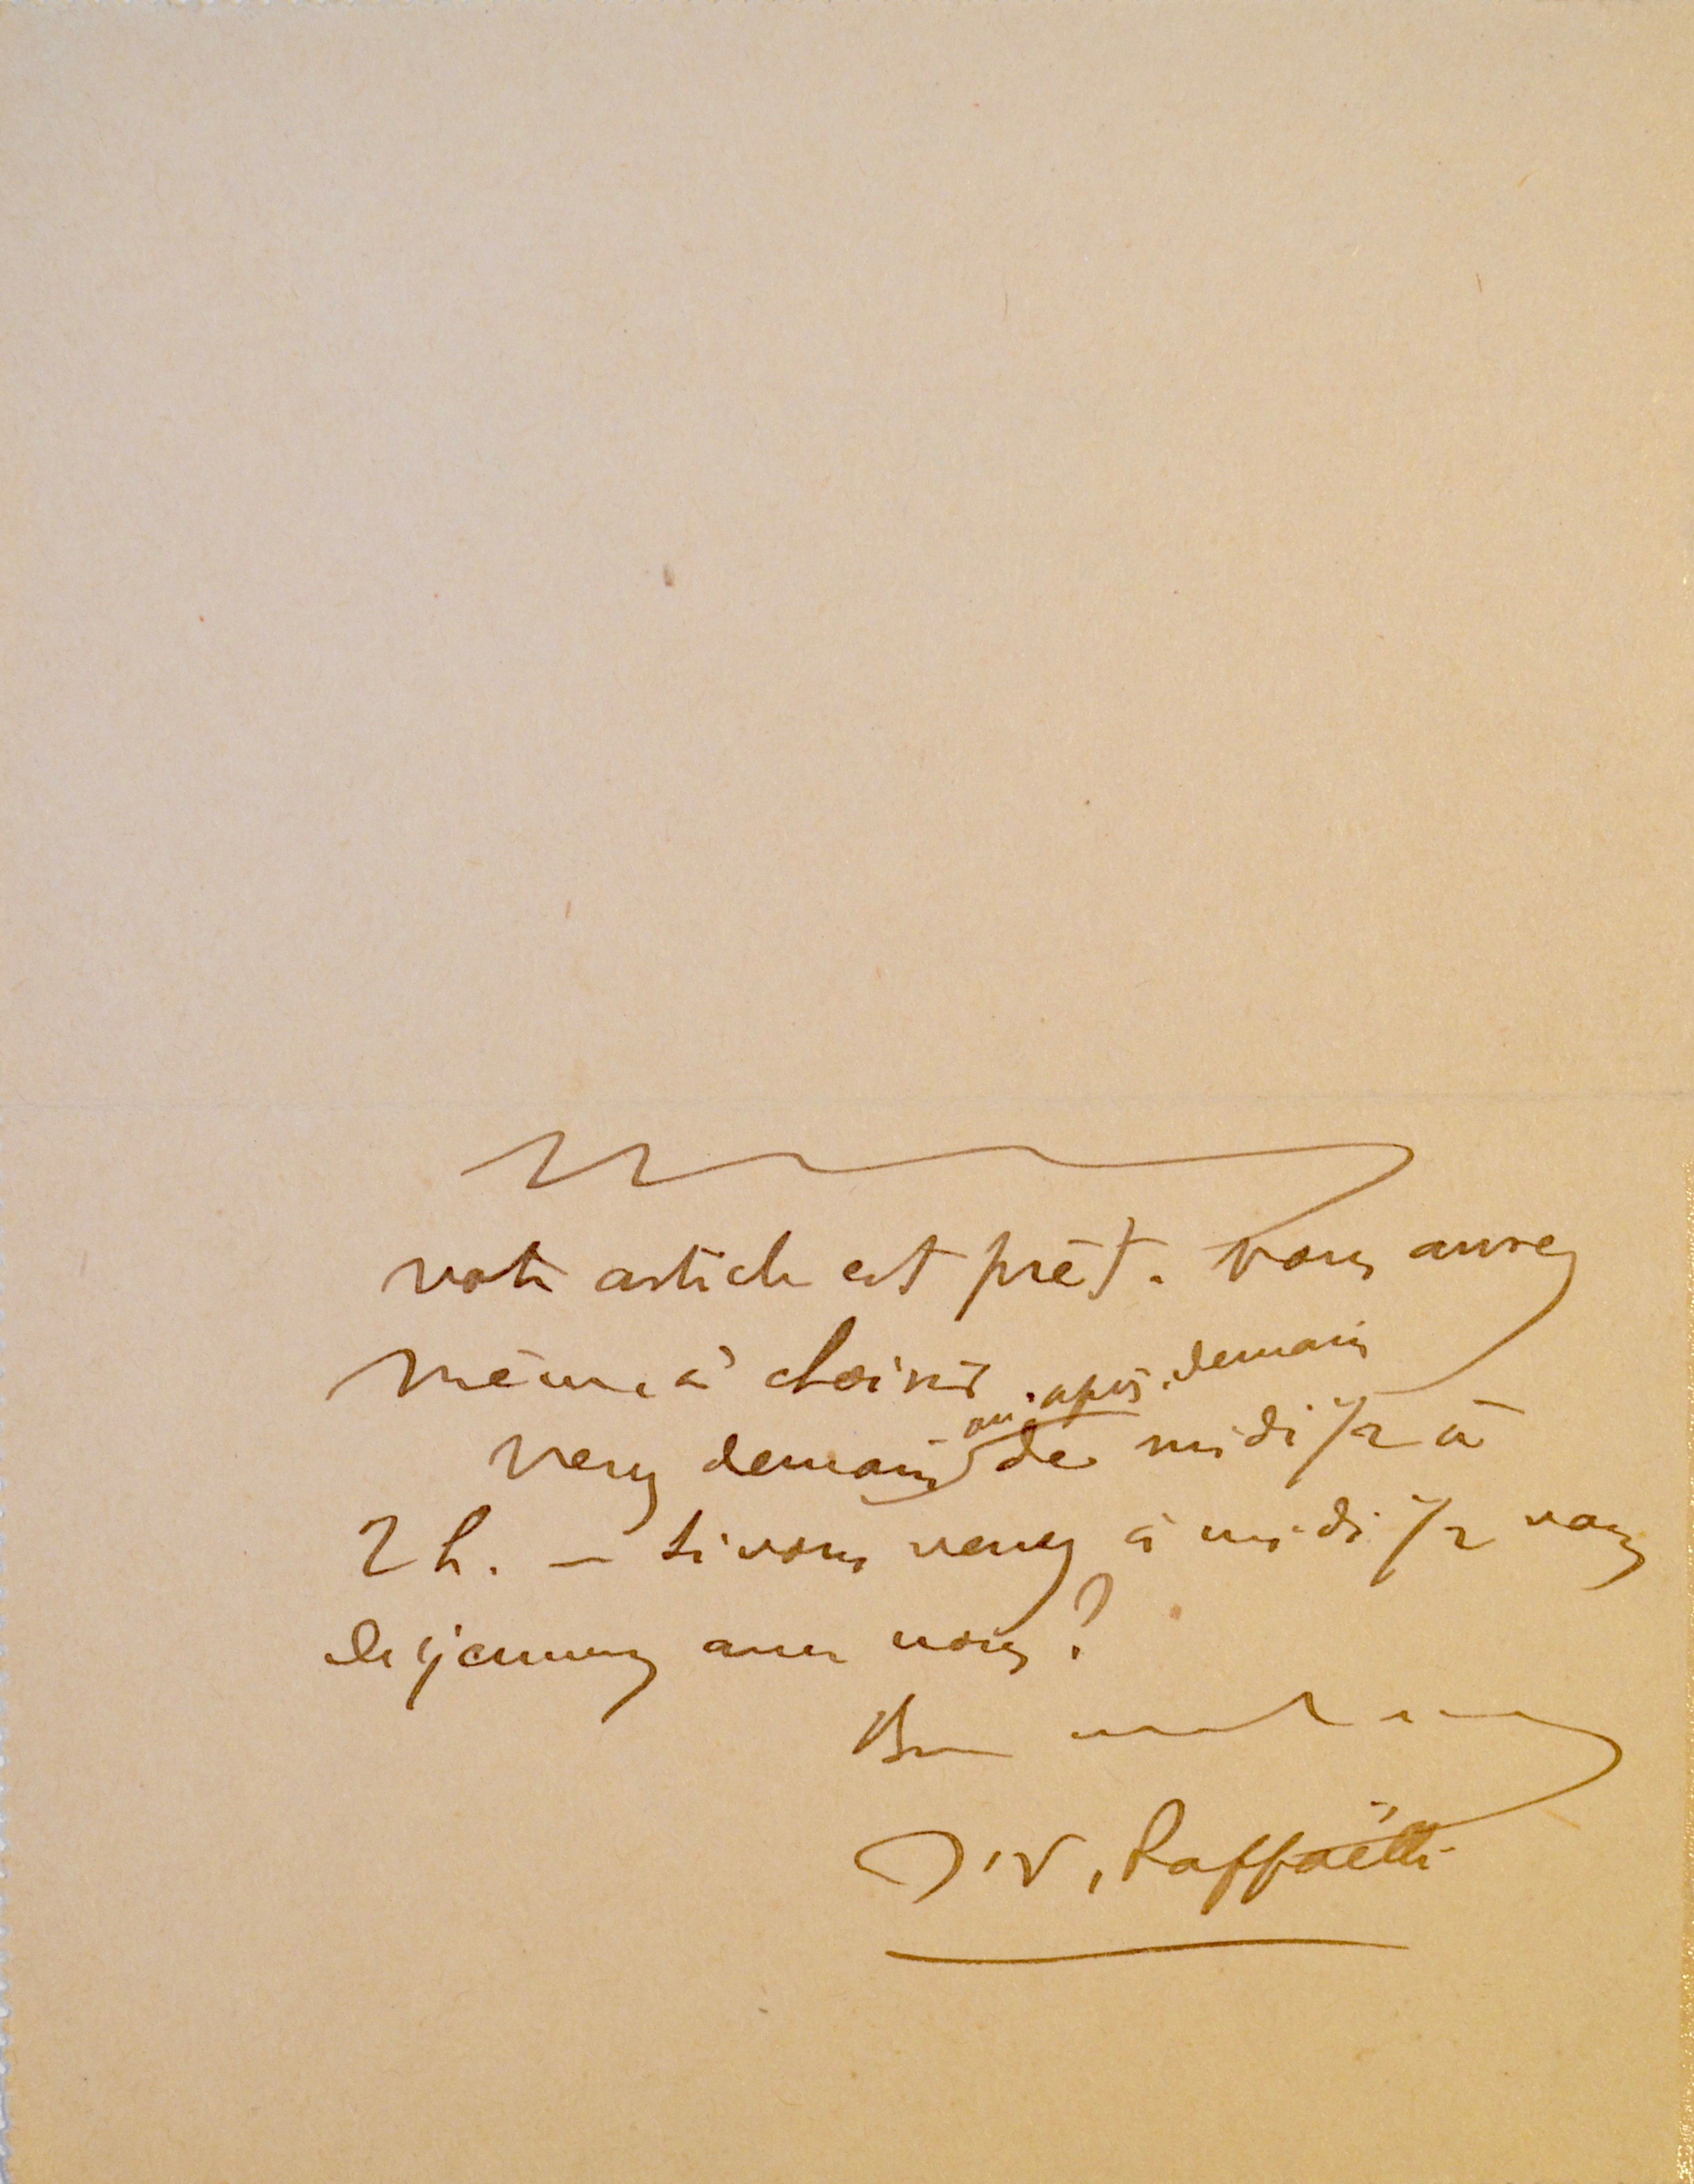 votre article est prêt. Vous aurez
même à choisir
ou après demain
Venez demain de midi 1/2 à
2 h. — si vous venez à midi 1/2 vous
déjeunez avec nous?
J.F. Raffaëlli